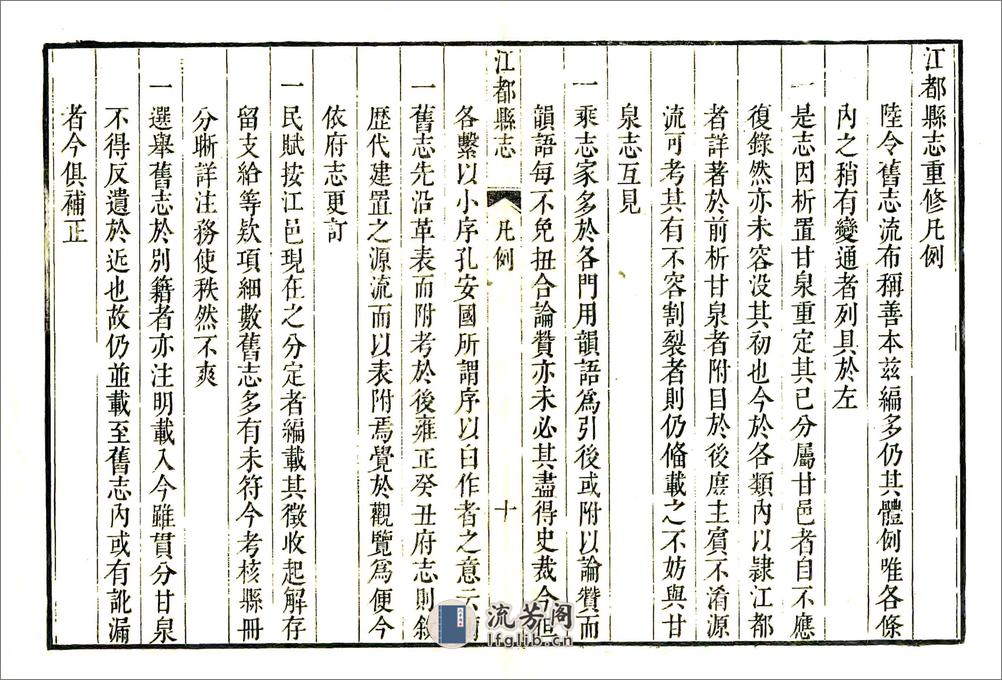 江都縣志重修凡例
陸令舊志流布稱善本茲編多仍其體例唯各條
內之稍有變通者列具於左
一是志因析置甘泉重定其已分屬甘邑者自不應
復錄然亦未容沒其初也今於各類內以隷江都
者詳著於前析甘泉者附目於後庶主賓不淆源
流可考其有不容割裂者則仍備載之不妨與甘
泉志互見
一乘志家多於各門用韻語爲引後或附以論贊而
韻語每不免扭合論贊亦未必其盡得史裁今但
江都縣志 凡例 十
各繫以小序孔安國所謂序以曰作者之意云
一舊志先沿革表而附考於後雍正癸丑府志則敘
歷代建置之源流而以表附焉覺於觀覽爲便今
依府志更訂
一民賦按江邑現在之分定者編載其徵收起解存
留支給等欵項細數舊志多有未符今考核縣冊
分晰詳注務使秩然不爽
一選舉舊志於別籍者亦注明載入今雖貫分甘泉
不得反遺於近也故仍並載至舊志內或有訛漏
者今俱補正
流芳阁
lfglib.cn